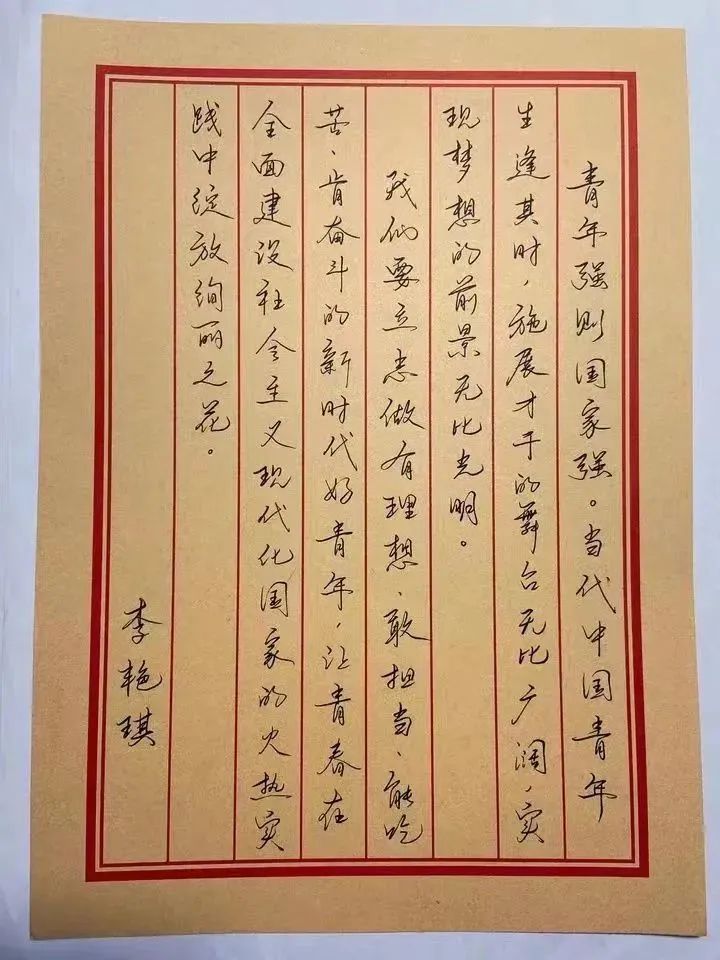 青年强则国家强。当代中国青年
生逢其时，施展才干的舞台无比广阔，实
现梦想的前景无比光明。
我们要立志做有理想、敢担当、能吃
苦、肯奋斗的新时代好青年，让青春在
全面建设社会主义现代化国家的火热实
践中绽放绚丽之花。
李艳琪